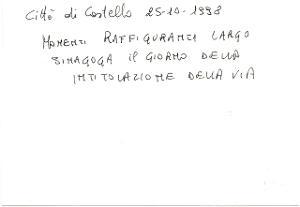 Città di Castello 25-10-1998
MOMENTI RAFFIGURANTI LARGO
SINAGOGA IL GIORNO DELLA
INTITOLAZIONE DELLA VIA